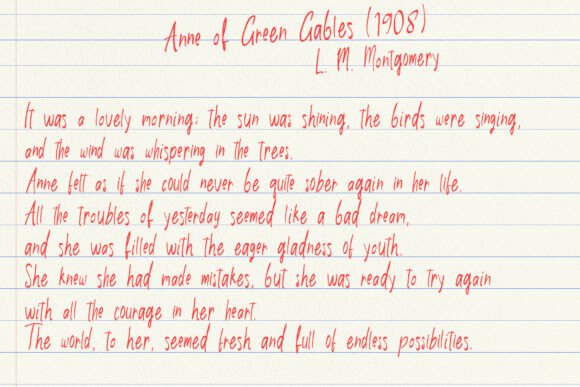 Anne of Green Gables (1908)
L. M. Montgomery
It was a lovely morning; the sun was shining, the birds were singing,
and the wind was whispering in the trees.
Anne felt as if she could never be quite sober again in her life.
All the troubles of yesterday seemed like a bad dream,
and she was filled with the eager gladness of youth.
She knew she had made mistakes, but she was ready to try again
with all the courage in her heart.
The world, to her, seemed fresh and full of endless possibilities.